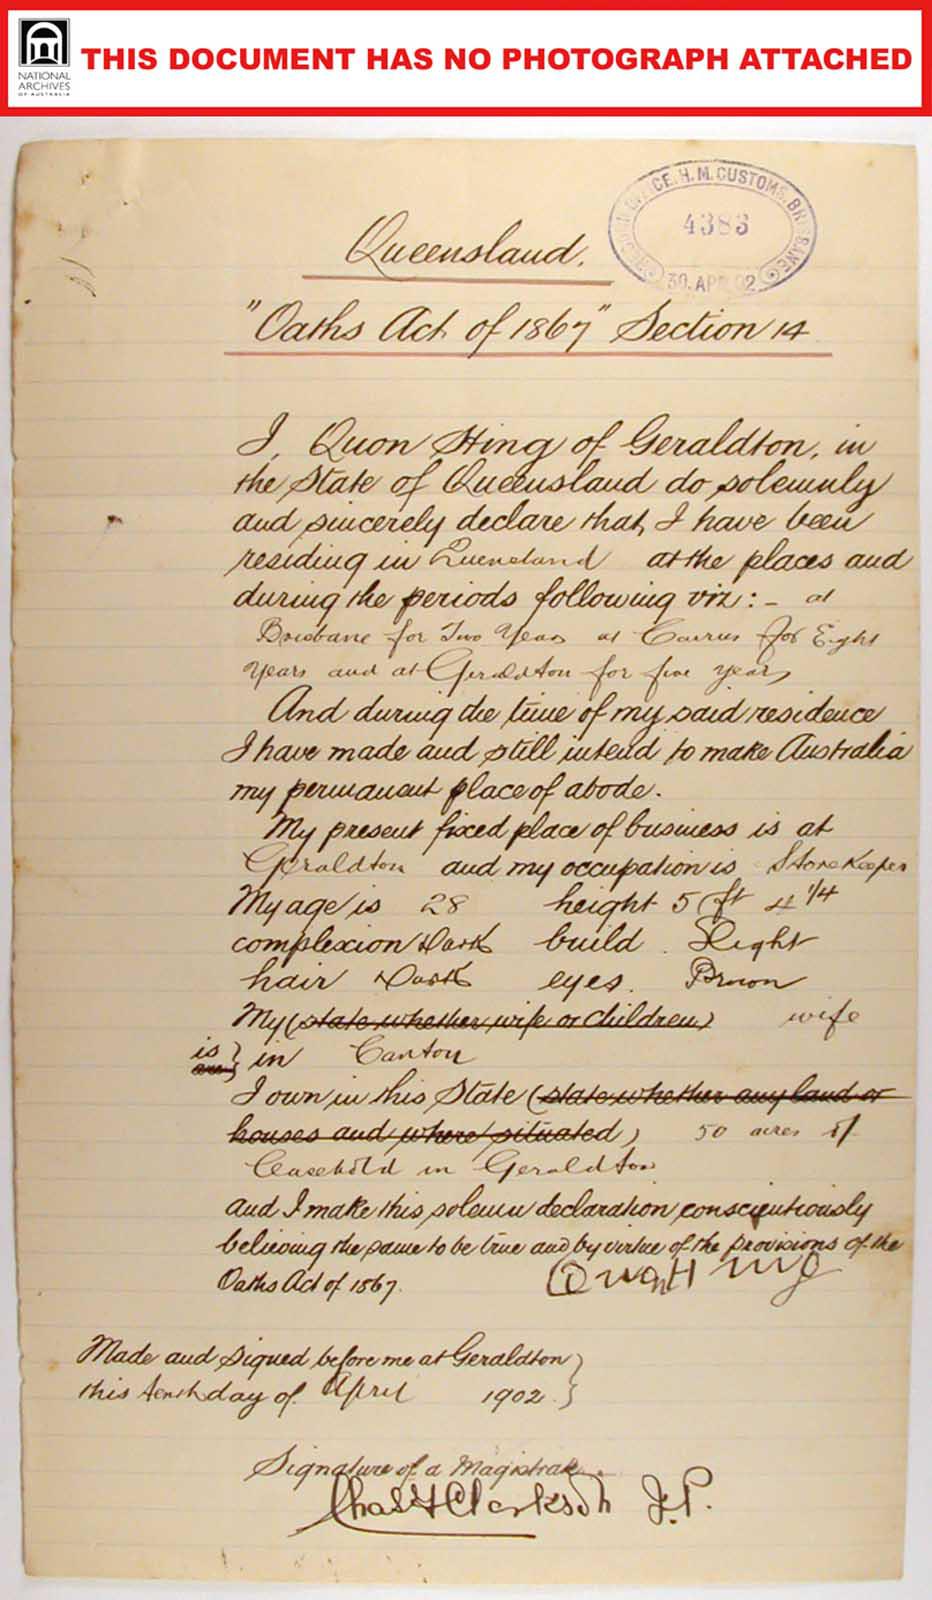 NATIONAL
ARCHIVES
OF AUSTRALIA
THIS DOCUMENT HAS NO PHOTOGRAPH ATTACHED
OFFICE. H. M. CUSTOMS. BRISBANE
4383
30. APR. 02
Queensland.
"Oaths Act of 1867" Section 14
I, Quon Hing of Geraldton, in
the State of Queensland do solemnly
and sincerely declare that, I have been
residing in Queensland at the places and
during the periods following viz: - at
Brisbane for Two Years at Cairns for Eight
Years and at Geraldton for five years
And during the time of my said residence
I have made and still intend to make Australia
my permanent place of abode.
My present fixed place of business is at
Geraldton and my occupation is Storekeeper
My age is 28 height 5 ft 4 1/4
complexion Dark build. Slight
hair Dark eyes. Brown
My (state whether wife or children) wife
is } in Canton
are }
I own in this State (state whether any land or
houses and where situated) 50 acres of
Leasehold in Geraldton
and I make this solemn declaration conscientiously
believing the same to be true and by virtue of the provisions of the
Oaths Act of 1867.
Made and signed before me at Geraldton }
this tenth day of April 1902. }
Signature of a Magistrate.
Chas H Clarkson J.P.